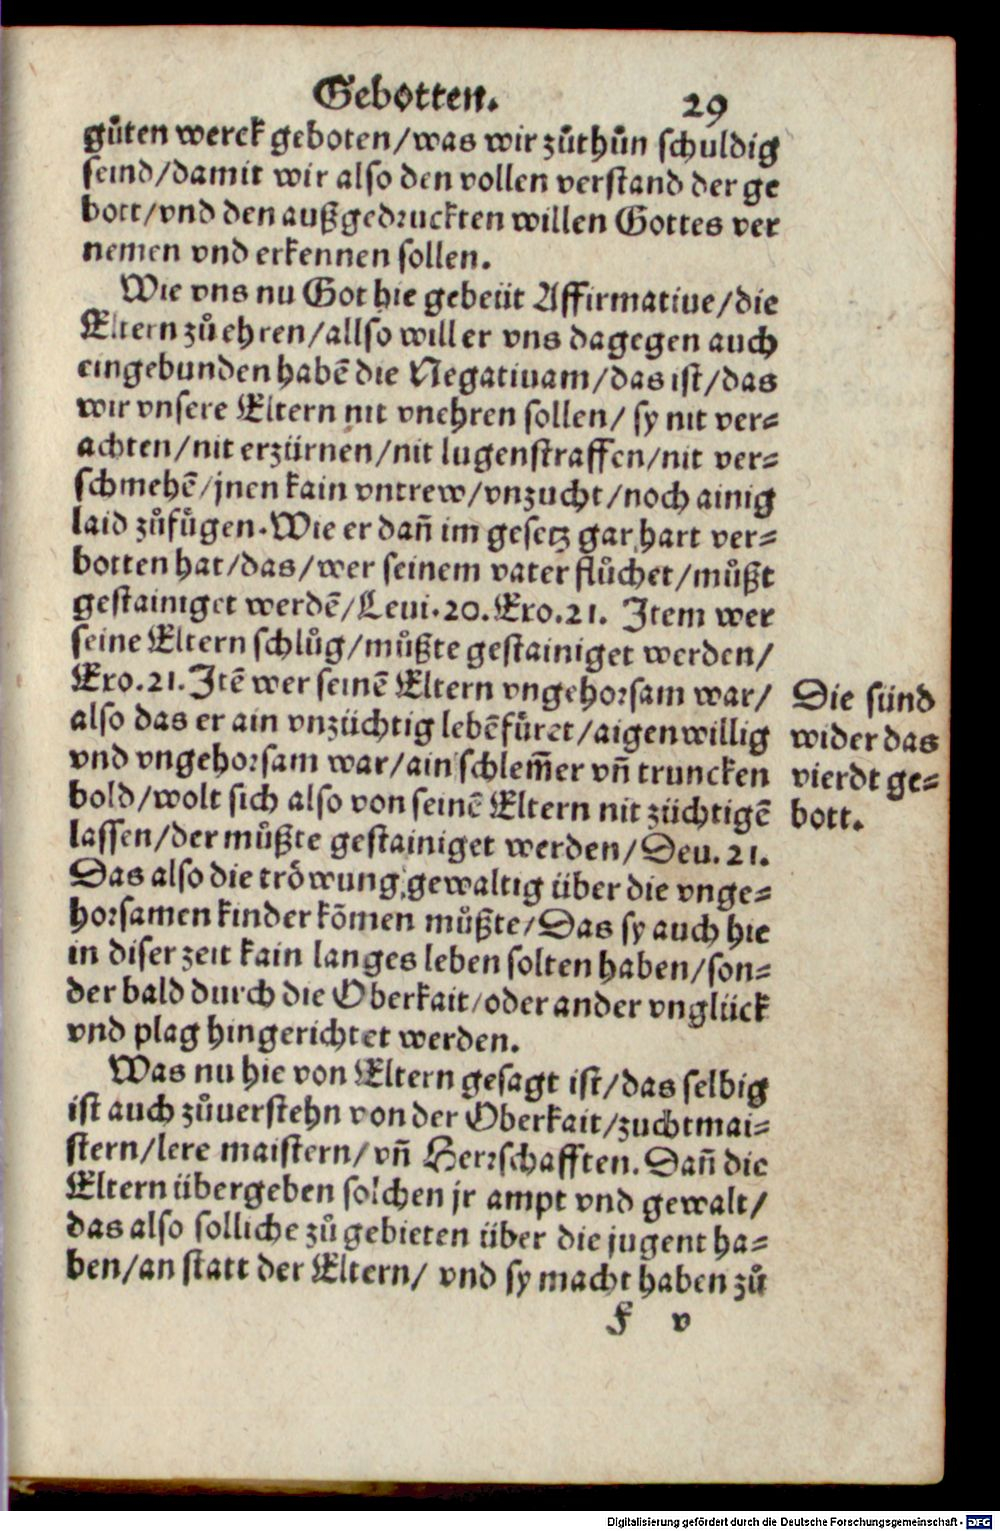 Gebotten. 29
gůten werck geboten/was wir zůthůn schuldig
seind/damit wir also den vollen verstand der ge
bott/vnd den außgedruckten willen Gottes ver
nemen vnd erkennen sollen.
Wie vns nu Got hie gebeüt Affirmatiue/die
Eltern zů ehren/allso will er vns dagegen auch
eingebunden habẽ die Negatiuam/das ist/das
wir vnsere Eltern nit vnehren sollen/ sy nit ver=
achten/nit erzürnen/nit lugenstraffen/nit ver=
schmehẽ/jnen kain vntrew/vnzucht/noch ainig
laid zůfůgen. Wie er dañ im gesetz gar hart ver=
botten hat/das/wer seinem vater flůchet/můßt
gestainiget werdẽ/Leui.20.Exo.21. Item wer
seine Eltern schlůg/můßte gestainiget werden/
Exo.21. Itẽ wer seinẽ Eltern vngehorsam war/
also das er ain vnzüchtig lebẽ fůret/aigenwillig
vnd vngehorsam war/ain schlem̃er vñ truncken
bold/wolt sich also von seinẽ Eltern nit züchtigẽ
lassen/der můßte gestainiget werden/Deu.21.
Das also die tröwung gewaltig über die vnge=
horsamen kinder kõmen můßte/Das sy auch hie
in diser zeit kain langes leben solten haben/son=
der bald durch die Oberkait/oder ander vnglück
vnd plag hingerichtet werden.
Die sünd
wider das
vierdt ge=
bott.
Was nu hie von Eltern gesagt ist/das selbig
ist auch zůuerstehn von der Oberkait/zuchtmai=
stern/lere maistern/vñ Herrschafften. Dañ die
Eltern übergeben solchen jr ampt vnd gewalt/
das also solliche zů gebieten über die jugent ha=
ben/an statt der Eltern/ vnd sy macht haben zů
F v
Digitalisierung gefördert durch die Deutsche Forschungsgemeinschaft - DFG